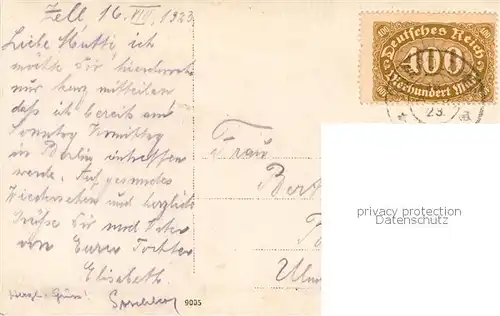 Zell, 16. VIII. 1923.
Liebe Mutti, ich
möchte Dir hierdurch
nur kurz mitteilen
daß ich bereits am
Sonntag Vormittag
in Berlin eintreffen
werde. Auf gesundes
Wiedersehen und herzliche
Grüße Dir und Vater
von Eurer Tochter
Elisabeth.
Herzl. Grüße!
9035
Deutsches Reich
400
400
400
Vierhundert Mark
23.
a
Frau
Bert
Ulm
privacy protection
DATENSCHUTZ